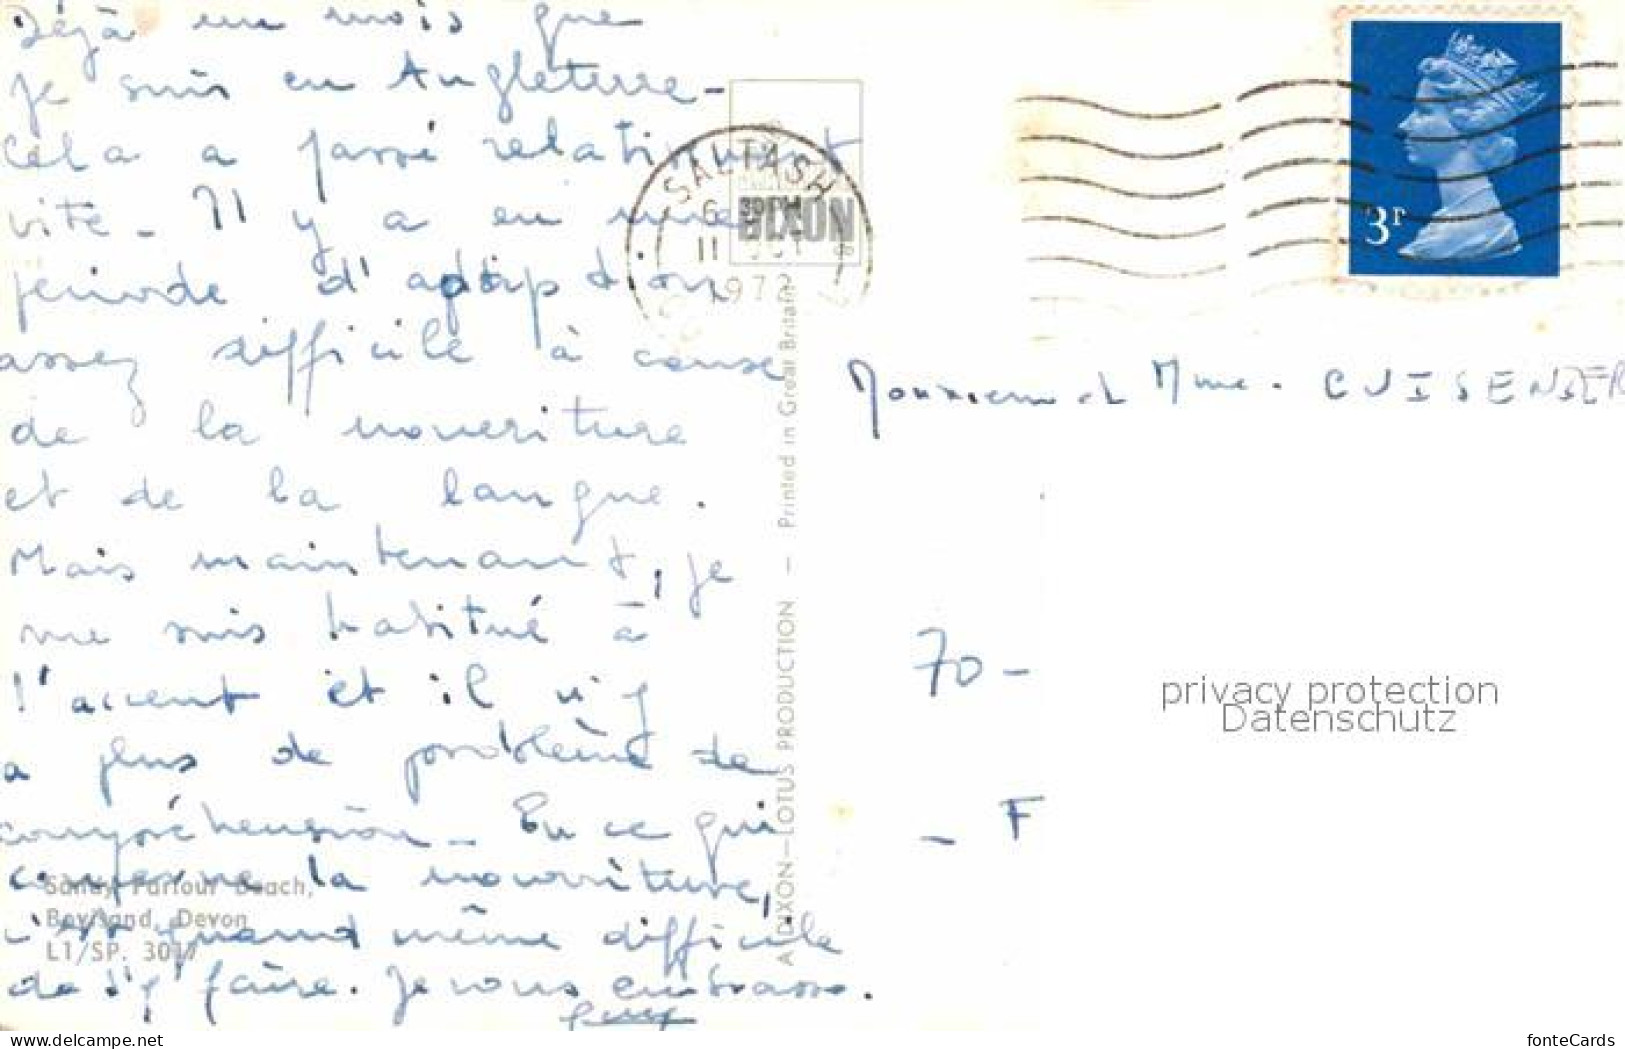 Déjà un mois que
je suis en Angleterre -
Cela a passé relativement
vite - Il y a eu une
période d'adaption
assez difficile à cause
de la nourriture
et de la langue.
Mais maintenant, je
me suis habitué à
l'accent et il n'y
a plus de problème de
compréhension - En ce qui
concerne la nourriture,
c'est quand même difficile
de s'y faire. Je vous embrasse.
Sandy Parlour Beach,
Bovisand, Devon
L1/SP. 3017
A DIXON—LOTUS PRODUCTION — Printed in Great Britain
DIXON
SALTASH
6 PM
11
1972
3P
Monsieur et Mme. CUISENIER
70 -
- F
privacy protection
Datenschutz
www.delcampe.net
fonteCards